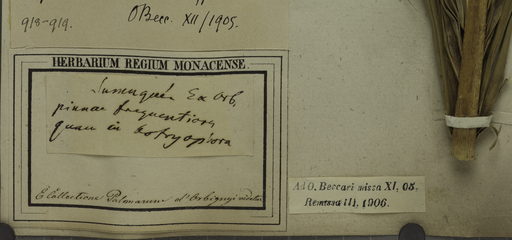 O Becc. XII/1905.
918-919.
HERBARIUM REGIUM MONACENSE.
Sumuqué Ex Orb,
pinnae frequentiora
quam in botryophora
E Collectione Palmarum d'Orbignyi videtur
Ad O. Beccari missa XI, 05.
Remissa III, 1906.